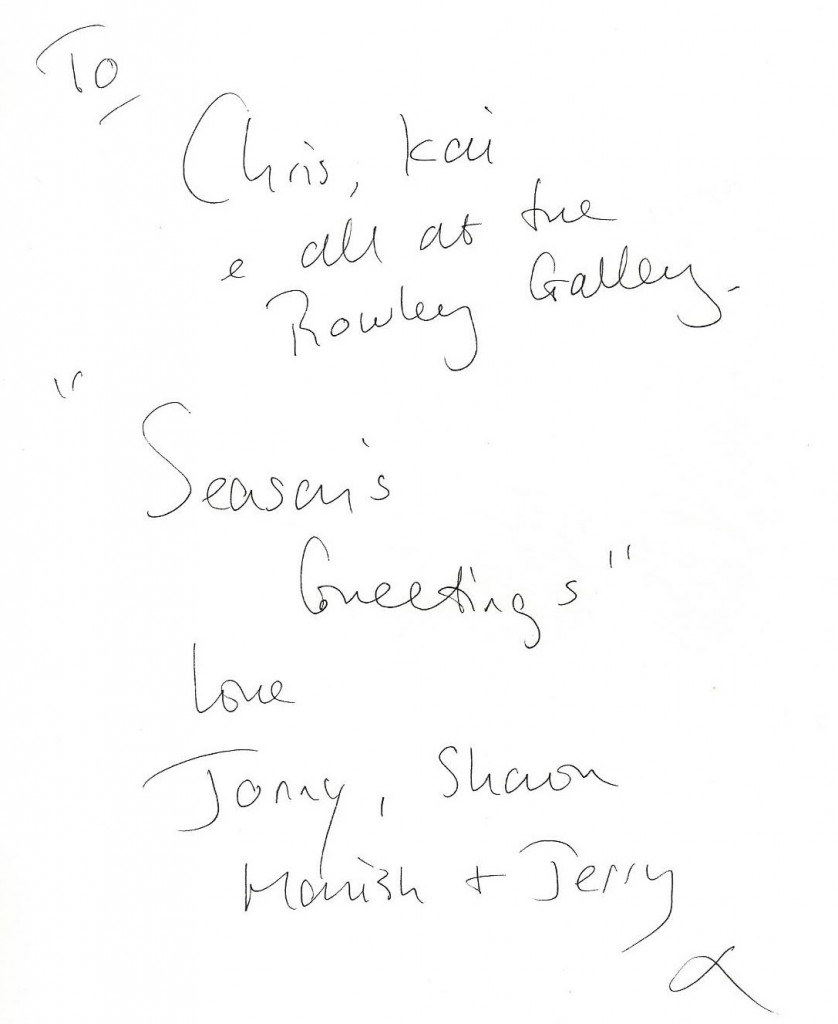 To
Chris, Kai
e all at the
Rowley Gallery.
"Season's
Greetings"
Love
Jonny, Sharon
Manish + Jerry
x